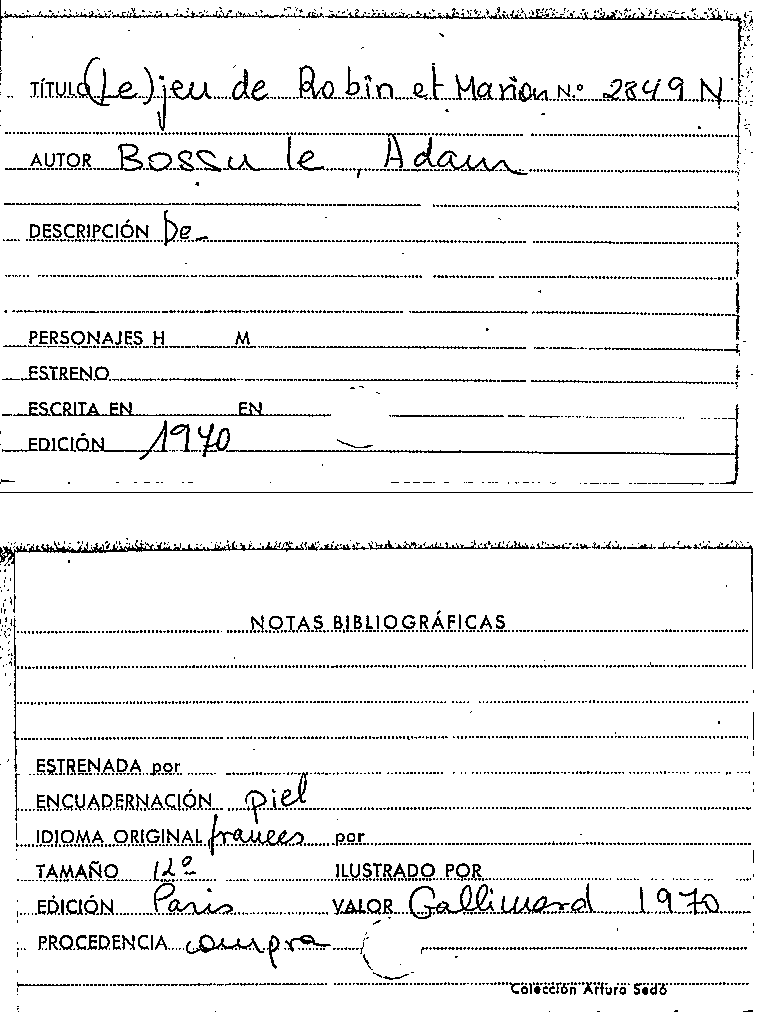 TÍTULO (Le) jeu de Robin et Marion N.º 2849 N
AUTOR Bossu le, Adam
DESCRIPCIÓN De
PERSONAJES H M
ESTRENO
ESCRITA EN EN
EDICIÓN 1970
NOTAS BIBLIOGRÁFICAS
ESTRENADA por
ENCUADERNACIÓN piel
IDIOMA ORIGINAL frances por
TAMAÑO 12º ILUSTRADO POR
EDICIÓN Paris VALOR Gallimard 1970
PROCEDENCIA compra
Colección Arturo Sedó